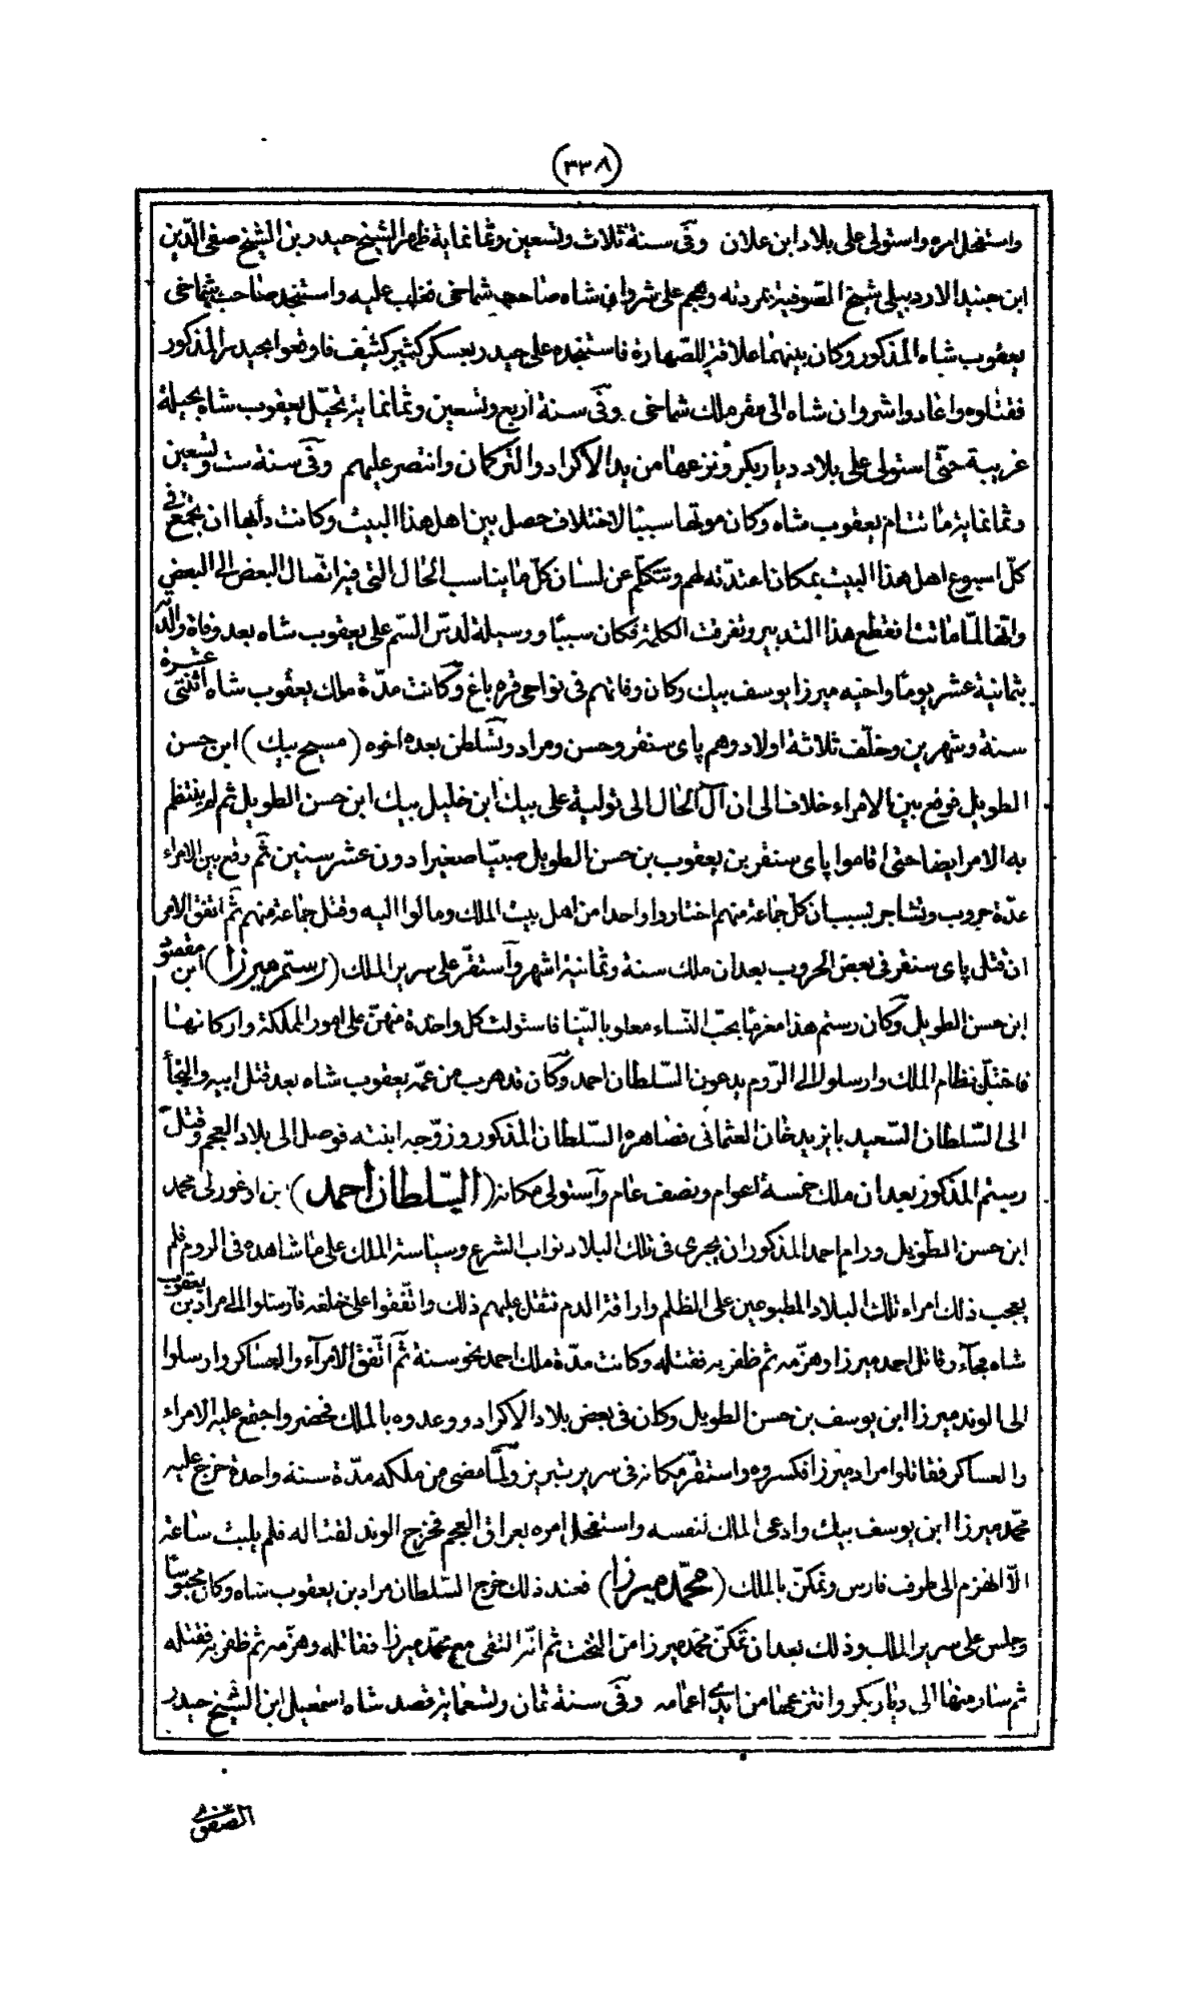 (٣٣٨)
واستفحل امره واستولى على بلاد ابن علان وفى سنة ثلاث وتسعين وثمانماية ظهر الشيخ حيدر بن الشيخ صفى الدّين
ابن جنيد الاردبيلى شيخ الصّوفية بمردته وهجم على شروان شاه صاحب شماخى فغلب عليه واستنجد صاحب شماخى
بيعقوب شاه المذكور وكان بينهما علاقة للصّهارة فاستنجده على حيدر بعسكر كثير كثيف فاوقعوا بحيدر المذكور
فقتلوه واعادوا شروان شاه الى مقر ملك شماخى وفى سنة اربع وتسعين وثمانماية تحيّل يعقوب شاه بحيلة
غريبة حتى استولى على بلاد ديار بكر ونزعها من يد الاكراد والتركمان وانتصر عليهم وفى سنة ست وتسعين
وثمانماية ماتت ام يعقوب شاه وكان موتها سببا لاختلاف حصل بين اهل هذا البيت وكانت دأبها ان تجمع فى
كلّ اسبوع اهل هذا البيت بمكان اعتدّته لهم وتتكلّم عن لسان كلّ ما يناسب الحال التى فيه اتّصال البعض الى البعض
وانها لمّا ماتت انقطع هذا التدبير وتفرقت الكلمة فكان سببًا ووسيلة لدسّ السّم على يعقوب شاه بعد وفاة والدته
بثمانية عشر يومًا واخيه ميرزا يوسف بيك وكان وفاتهم فى نواحى قره باغ وكانت مدّة ملك يعقوب شاه اثنتى عشرة
سنة وشهرين وخلّف ثلاثة اولاد وهم پاى سنقر وحسن ومراد وتسلطن بعده اخوه (مسيح بيك) ابن حسن
الطويل فوقع بين الامراء خلاف الى ان آل الحال الى تولية على بيك ابن خليل بيك ابن حسن الطويل ثم لم ينتظم
به الامر ايضا حتى اقاموا پاى سنقر بن يعقوب بن حسن الطويل صبيّا صغيرا دون عشر سنين ثم وقع بين الامراء
عدّة حروب وتشاجر بسبب ان كلّ جماعة منهم اختاروا واحدا من اهل بيت الملك ومالوا اليه وقتل جماعة منهم ثم اتفق الامر
ان قتل پاى سنقر فى بعض الحروب بعد ان ملك سنة وثمانية اشهر وآستقرّ على سرير الملك (رستم ميرزا) ابن مقصود
ابن حسن الطويل وكان رستم هذا مغرمًا بحبّ النّساء مغلوبا لنسا فاستولت كل واحدة منهنّ على امور المملكة واركانها
فاختلّ نظام الملك وارسلوا الى الرّوم يدعون السّلطان احمد وكان قد هرب من عمّه يعقوب شاه بعد قتل ابيه والتجأ
الى السّلطان السّعيد بايزيد خان العثمانى فصاهره السّلطان المذكور وزوّجه ابنته فوصل الى بلاد العجم وقتل
رستم المذكور بعد ان ملك خمسة اعوام ونصف عام وآستولى مكانه (السّلطان أحمد) بن ادغورلى محمد
ابن حسن الطّويل ورام احمد المذكور ان يجرى فى تلك البلاد نواب الشرع وسياسة الملك على ما شاهده فى الروم فلم
يعجب ذلك امراء تلك البلاد المطبوعين على الظلم واراقة الدم فثقل عليهم ذلك واتّفقوا على خلعه فآرسلوا الى مراد بن يعقوب
شاه فجآء وقاتل احمد ميرزا وهزّمه ثم ظفر به فقتله وكانت مدّة ملك احمد نحو سنة ثم اتّفق الامرآء والعساكر وارسلوا
الى الوند ميرزا ابن يوسف بن حسن الطويل وكان فى بعض بلاد الاكراد ووعدوه بالملك فحضر واجتمع عليه الامراء
والعساكر فقاتلوا مراد ميرزا فكسروه واستقرّ مكانه فى سرير تبريز ولمّا مضى من ملكه مدّة سنة واحدة خرج عليه
محمّد ميرزا ابن يوسف بيك وادعى الملك لنفسه واستفحل امره بعراق العجم فخرج الوند لقتاله فلم يلبث ساعة
الاّ انهزم الى طرف فارس وتمكنّ بالملك (محمّد ميرزا) فعند ذلك خرج السّلطان مراد بن يعقوب شاه وكان محبوسًا
وجلس على سرير الملك وذلك بعد ان تمكنّ محمّد ميرزا من التخت ثم انّه التقى مع محمّد ميرزا فقاتله وهزّمه ثم ظفر به فقتله
ثم سار منها الى ديار بكر وانتزعها من ايدى اعمامه وفى سنة ثمان وتسعماية قصد شاه اسمعيل ابن الشيخ حيدر
الصّفوى